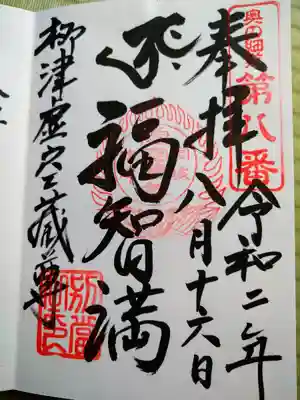 奉拝
令和二年
八月十六日
福智満
柳津虚空蔵尊
第八番
別當